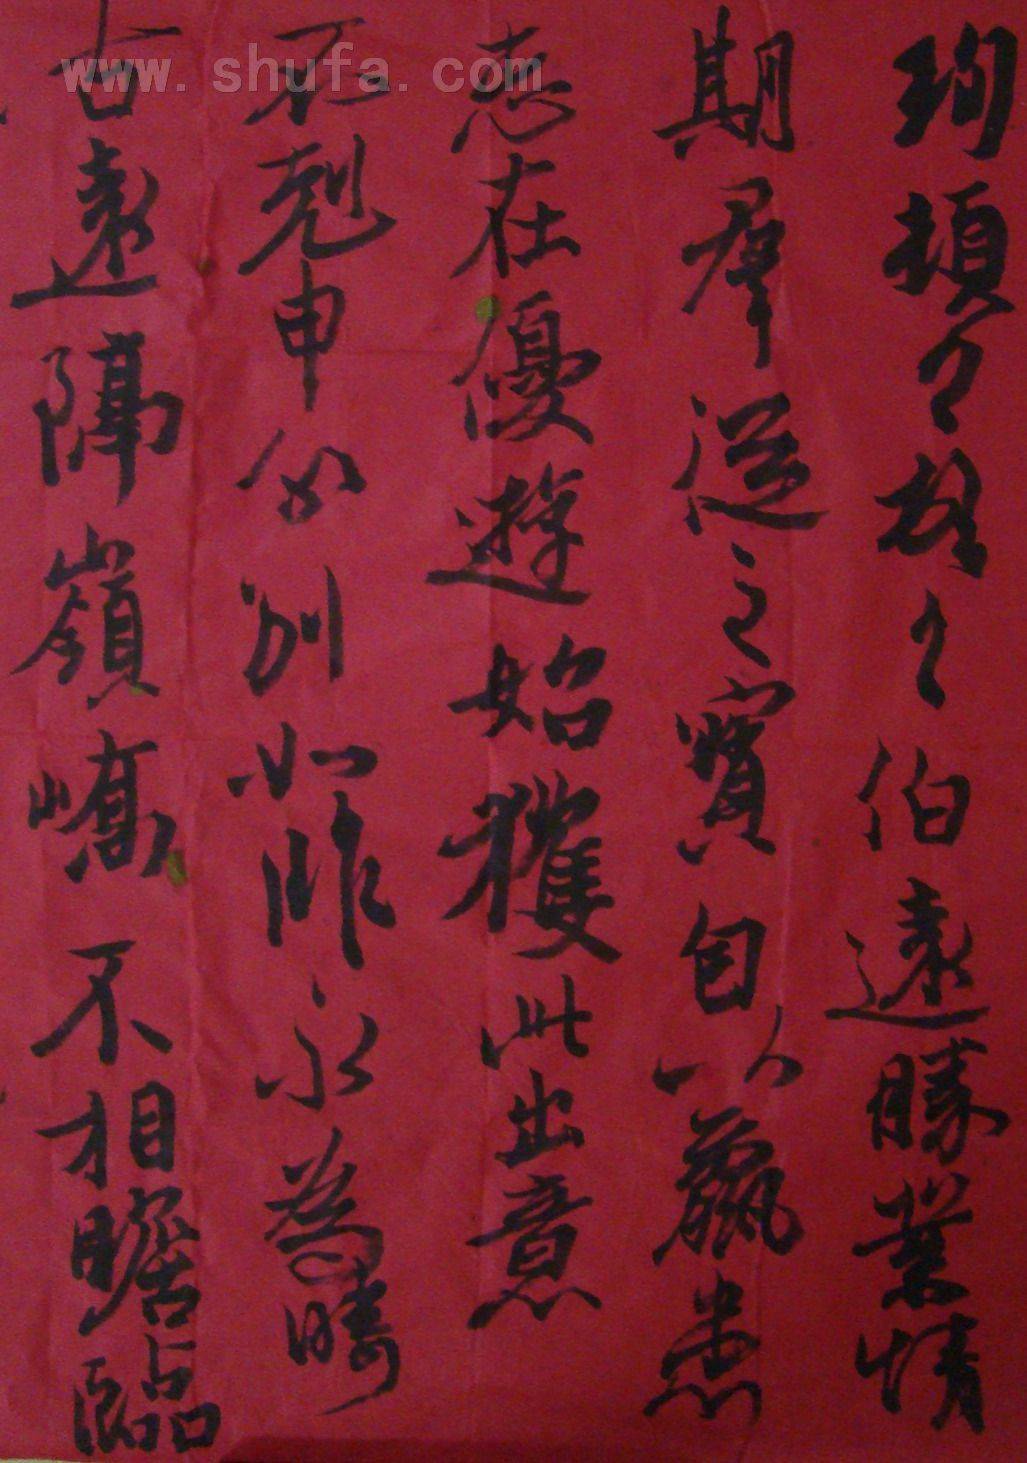 珣頓首頓首伯遠勝業情
期群從之寶自以羸患
志在優遊始獲此出意
不剋申分別如昨永為疇
古遠隔嶺嶠不相瞻臨
www.shufa.com